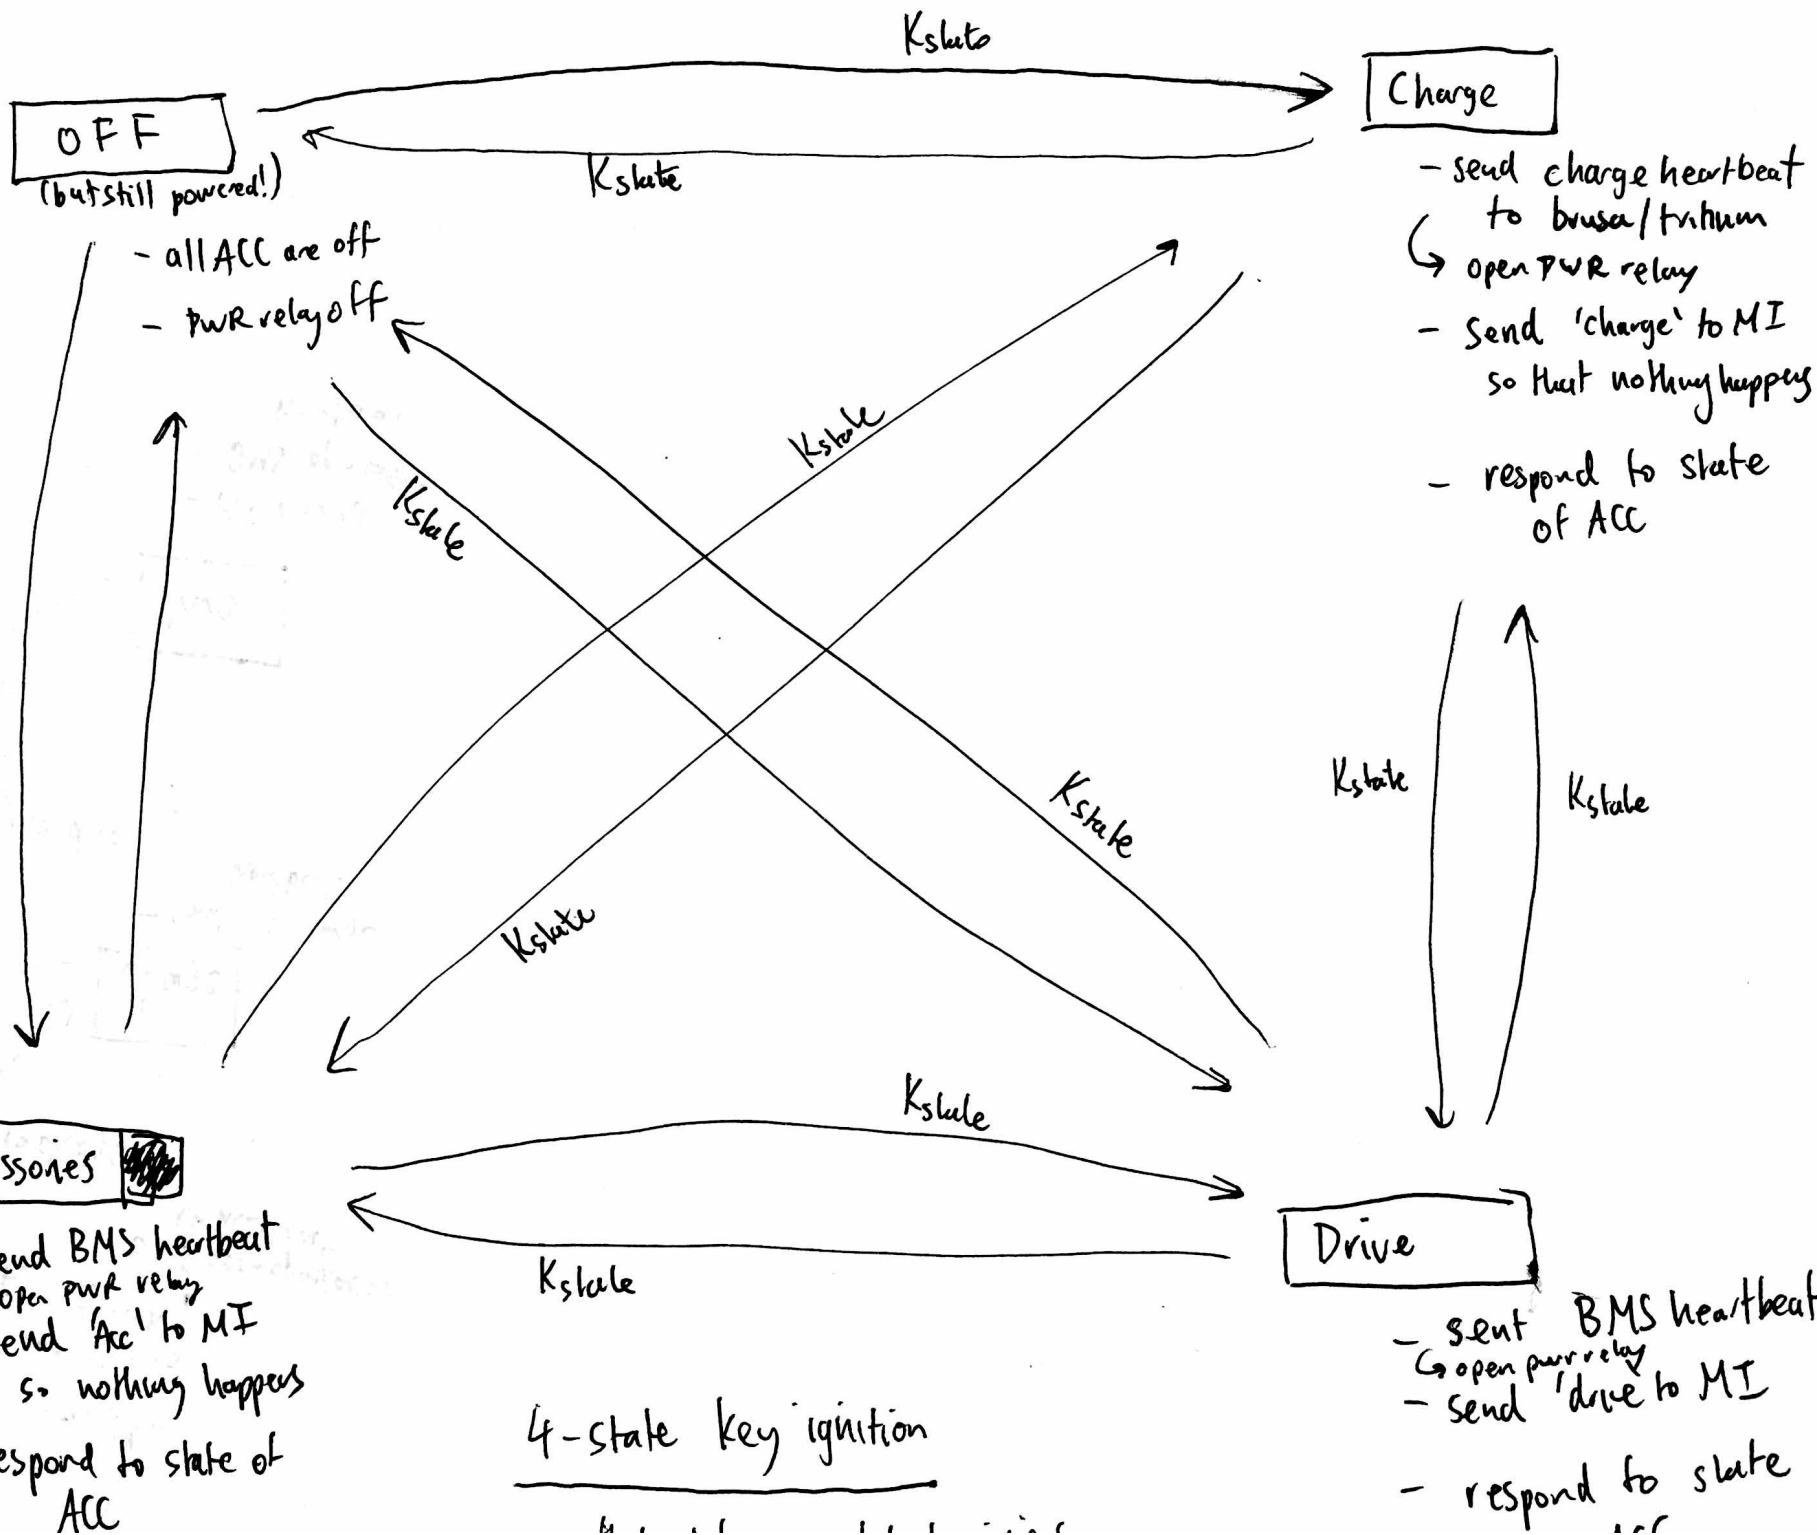 Kstate
OFF
(but still powered!)
- all ACC are off
- PWR relay off
Kstate
Charge
- send charge heartbeat
to brusa/tritium
open PWR relay
- send 'charge' to MI
so that nothing happens
- respond to state
of ACC
Kstate
Kstate
Kstate
Kstate
Kstate
Kstate
Kstate
Kstate
ssories
end BMS heartbeat
open PWR relay
end 'Acc' to MI
so nothing happens
espond to state of
ACC
Drive
- sent BMS heartbeat
open pwr relay
- send 'drive' to MI
- respond to state
4-state key ignition